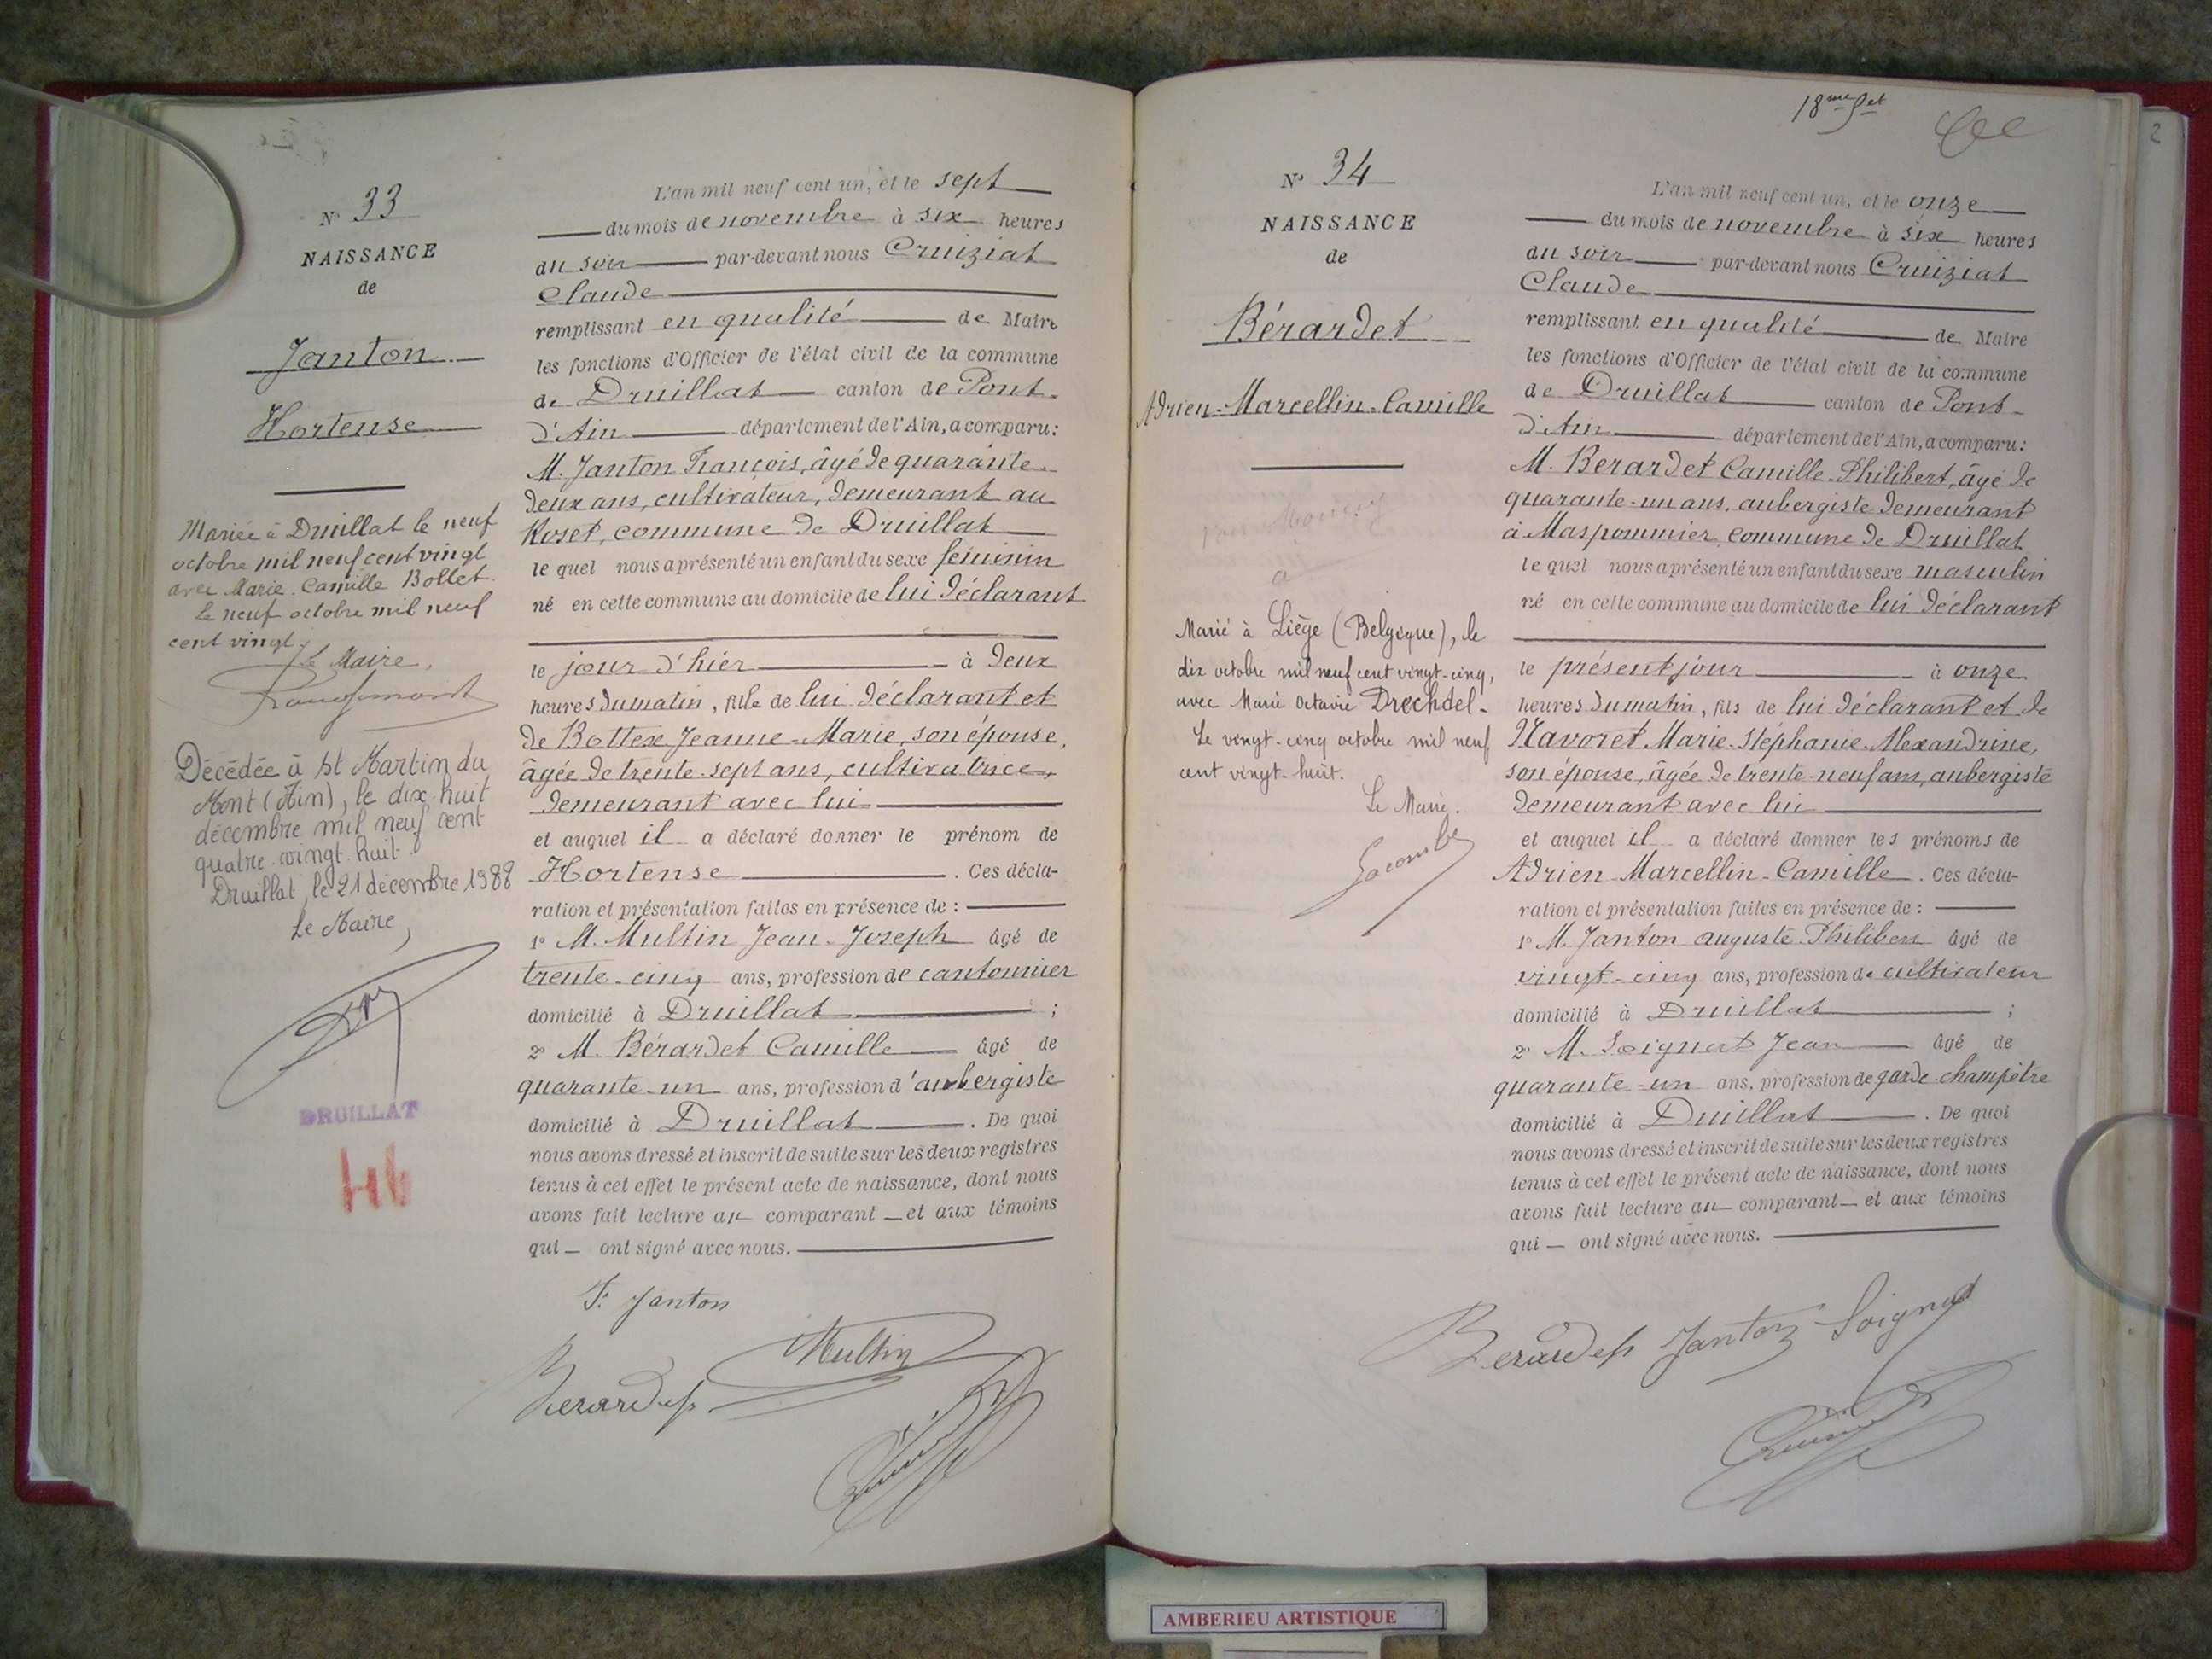 N° 33
NAISSANCE
de
Janton
Hortense
Mariée à Druillat le neuf
octobre mil neuf cent vingt
avec Marie Camille Bollet.
Le neuf octobre mil neuf
cent vingt.
Le Maire,
Décédée à St Martin du
Mont (Ain), le dix huit
décembre mil neuf cent
quatre-vingt-huit.
Druillat, le 21 décembre 1988
Le Maire,
DRUILLAT
L'an mil neuf cent un, et le sept
du mois de novembre à six heures
du soir par-devant nous Cruiziat
Claude
remplissant en qualité de Maire
les fonctions d'Officier de l'état civil de la commune
de Druillat canton de Pont-
d'Ain département de l'Ain, a comparu:
M. Janton François, âgé de quarante-
deux ans, cultivateur, demeurant au
Roset, commune de Druillat
le quel nous a présenté un enfant du sexe féminin
né en cette commune au domicile de lui déclarant
le jour d'hier à deux
heures du matin, fille de lui déclarant et
de Bottex Jeanne-Marie, son épouse,
âgée de trente-sept ans, cultivatrice,
demeurant avec lui
et auquel il a déclaré donner le prénom de
Hortense. Ces décla-
ration et présentation faites en présence de :
1° M. Multin Jean-Joseph âgé de
trente-cinq ans, profession de cantonnier
domicilié à Druillat ;
2° M. Bérardet Camille âgé de
quarante-un ans, profession d'aubergiste
domicilié à Druillat. De quoi
nous avons dressé et inscrit de suite sur les deux registres
tenus à cet effet le présent acte de naissance, dont nous
avons fait lecture au comparant et aux témoins
qui ont signé avec nous.
F. Janton
Multin
Berardet
18me Set
N° 34
NAISSANCE
de
Bérardet
Adrien-Marcellin-Camille
Marié à Liège (Belgique), le
dix octobre mil neuf cent vingt-cinq,
avec Marie Octavie Drechdel.
Le vingt-cinq octobre mil neuf
cent vingt-huit.
Le Maire.
L'an mil neuf cent un, et le onze
du mois de novembre à six heures
du soir par-devant nous Cruiziat
Claude
remplissant en qualité de Maire
les fonctions d'Officier de l'état civil de la commune
de Druillat canton de Pont-
d'Ain département de l'Ain, a comparu:
M. Berardet Camille-Philibert, âgé de
quarante-un ans, aubergiste demeurant
à Maspommier, commune de Druillat
le quel nous a présenté un enfant du sexe masculin
né en cette commune au domicile de lui déclarant
le présent jour à onze
heures du matin, fils de lui déclarant et de
Navoret Marie-Stéphanie-Alexandrine,
son épouse, âgée de trente-neuf ans, aubergiste
demeurant avec lui
et auquel il a déclaré donner les prénoms de
Adrien-Marcellin-Camille. Ces décla-
ration et présentation faites en présence de :
1° M. Janton auguste-Philibert âgé de
vingt-cinq ans, profession de cultivateur
domicilié à Druillat ;
2° M. Soignat Jean âgé de
quarante-un ans, profession de garde-champêtre
domicilié à Druillat. De quoi
nous avons dressé et inscrit de suite sur les deux registres
tenus à cet effet le présent acte de naissance, dont nous
avons fait lecture au comparant et aux témoins
qui ont signé avec nous.
Berardet Janton Soignat
AMBERIEU ARTISTIQUE